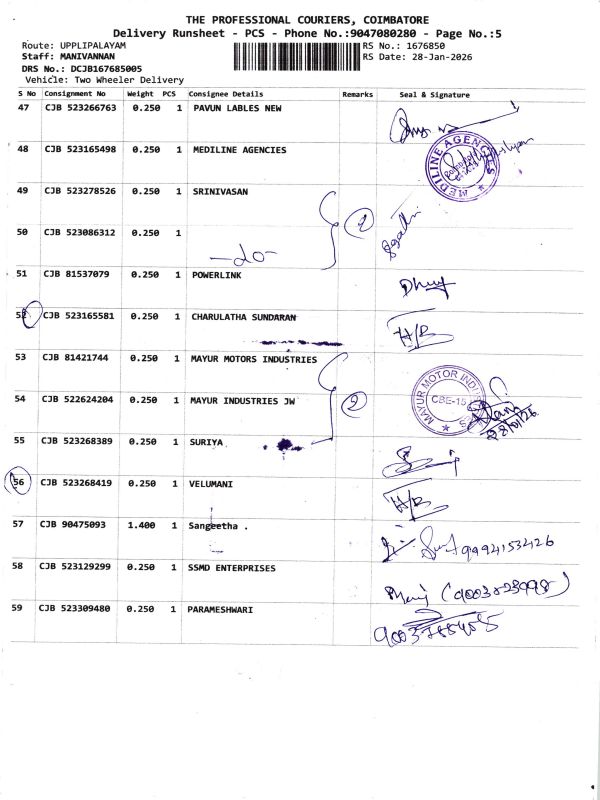 THE PROFESSIONAL COURIERS, COIMBATORE
Delivery Runsheet - PCS - Phone No.:9047080280 - Page No.:5
Route: UPPLIPALAYAM RS No.: 1676850
Staff: MANIVANNAN RS Date: 28-Jan-2026
DRS No.: DCJB167685005
Vehicle: Two Wheeler Delivery
S No Consignment No Weight PCS Consignee Details Remarks Seal & Signature
47 CJB 523266763 0.250 1 PAVUN LABLES NEW
48 CJB 523165498 0.250 1 MEDILINE AGENCIES
MEDILINE AGENCIES
49 CJB 523278526 0.250 1 SRINIVASAN
2
50 CJB 523086312 0.250 1
-do-
51 CJB 81537079 0.250 1 POWERLINK
52 CJB 523165581 0.250 1 CHARULATHA SUNDARAN
H/B
53 CJB 81421744 0.250 1 MAYUR MOTORS INDUSTRIES
54 CJB 522624204 0.250 1 MAYUR INDUSTRIES JW
2
MAYUR MOTOR INDUSTRIES
CBE-15
28/01/26
55 CJB 523268389 0.250 1 SURIYA
56 CJB 523268419 0.250 1 VELUMANI
H/B
57 CJB 90475093 1.400 1 Sangeetha .
9994153426
58 CJB 523129299 0.250 1 SSMD ENTERPRISES
59 CJB 523309480 0.250 1 PARAMESHWARI